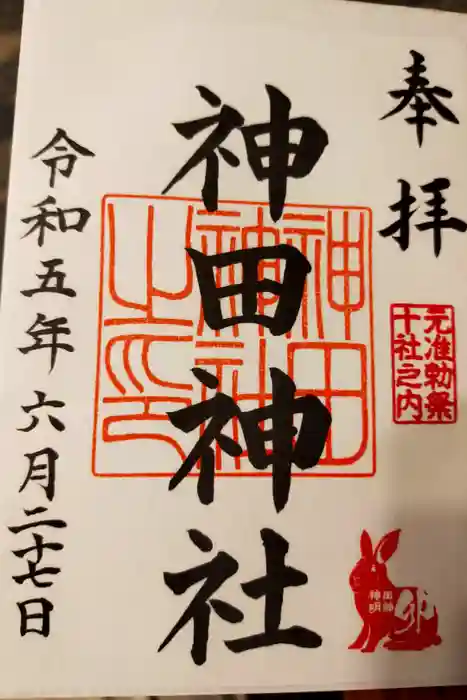 奉拝
元准勅祭
十社之内
神田神社
神田
神社
之印
令和五年六月二十七日
卯